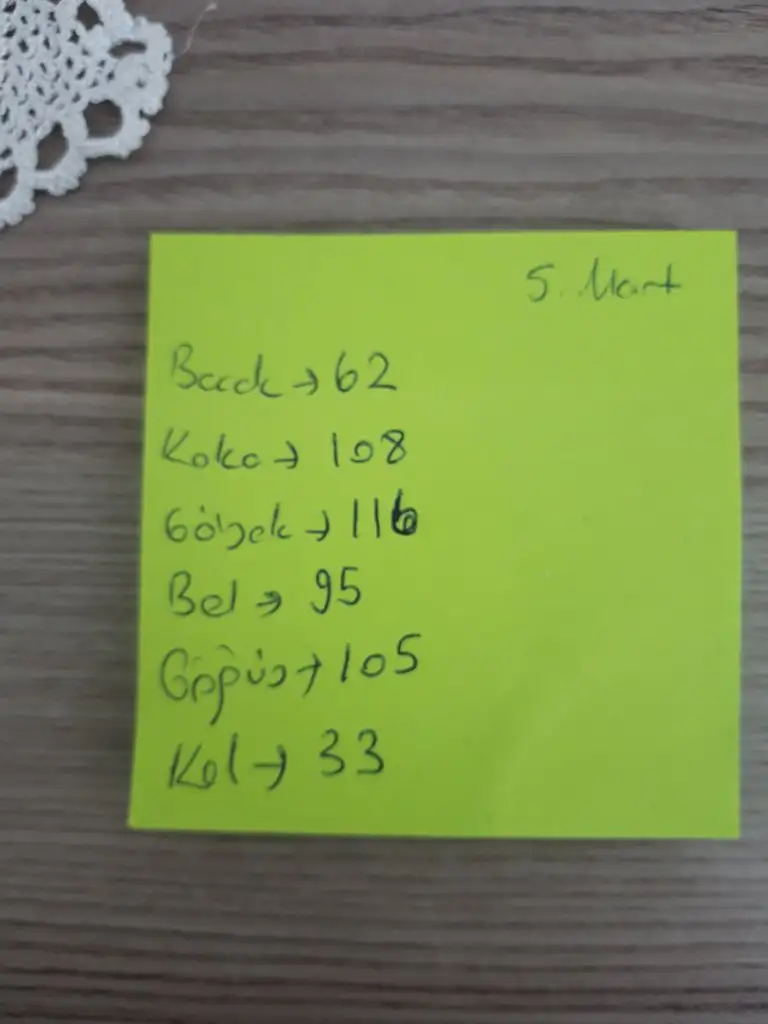 5. Mart
Bacak → 62
Kalça → 108
Göbek → 116
Bel → 95
Göğüs → 105
Kol → 33